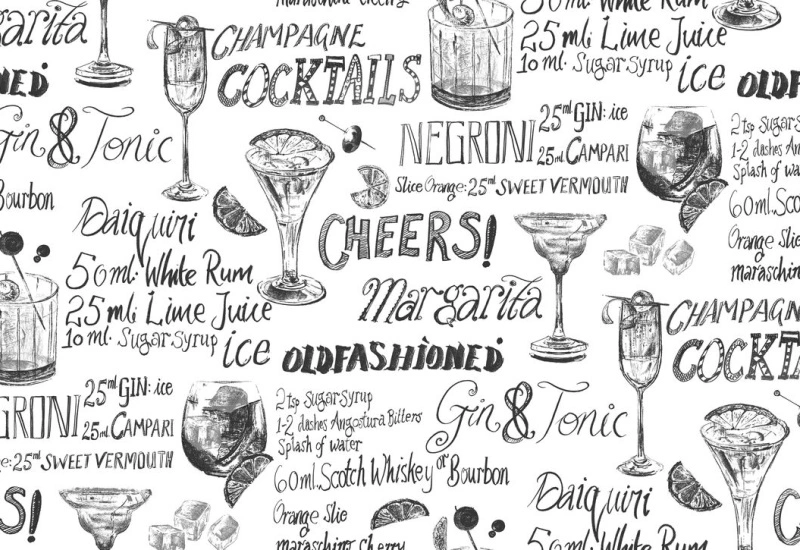 maraschino cherry
50ml White Rum
garita
CHAMPAGNE
25ml Lime Juice
COCKTAILS
10 ml. Sugar syrup
ice
NED
OLDF
25ml GIN: ice
Gin & Tonic
NEGRONI
25ml CAMPARI
2 tsp Sugar S
1-2 dashes An
Splash of wa
Slice Orange: 25ml SWEET VERMOUTH
Bourbon
60ml Scot
Daiquiri
CHEERS!
Orange Slic
50ml White Rum
maraschino
25ml Lime Juice
Margarita
CHAMPAGN
10 ml. Sugar syrup
ice
OLDFASHiONED
COCKTA
25ml GIN: ice
2 tsp Sugar Syrup
GRONI
25ml CAMPARI
1-2 dashes Angostura Bitters
Gin & Tonic
Splash of water
e: 25ml SWEET VERMOUTH
60ml Scotch Whiskey or Bourbon
S!
Daiquiri
Orange Slie
50ml White Rum
maraschino cherry
C